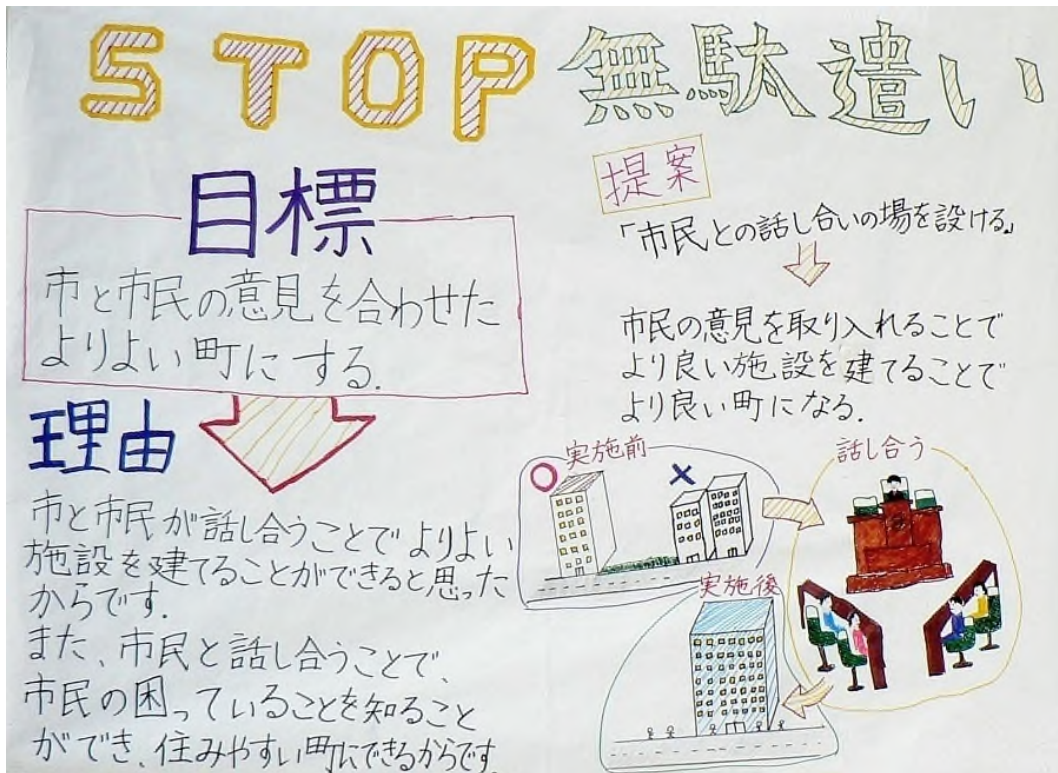 STOP無駄遣い
目標
市と市民の意見を合わせた
よりよい町にする.
理由
市と市民が話し合うことでよりよい
施設を建てることができると思った
からです.
また、市民と話し合うことで、
市民の困っていることを知ること
ができ、住みやすい町にできるからです
提案
「市民との話し合いの場を設ける。」
市民の意見を取り入れることで
より良い施設を建てることで
より良い町になる.
実施前
話し合う
実施後